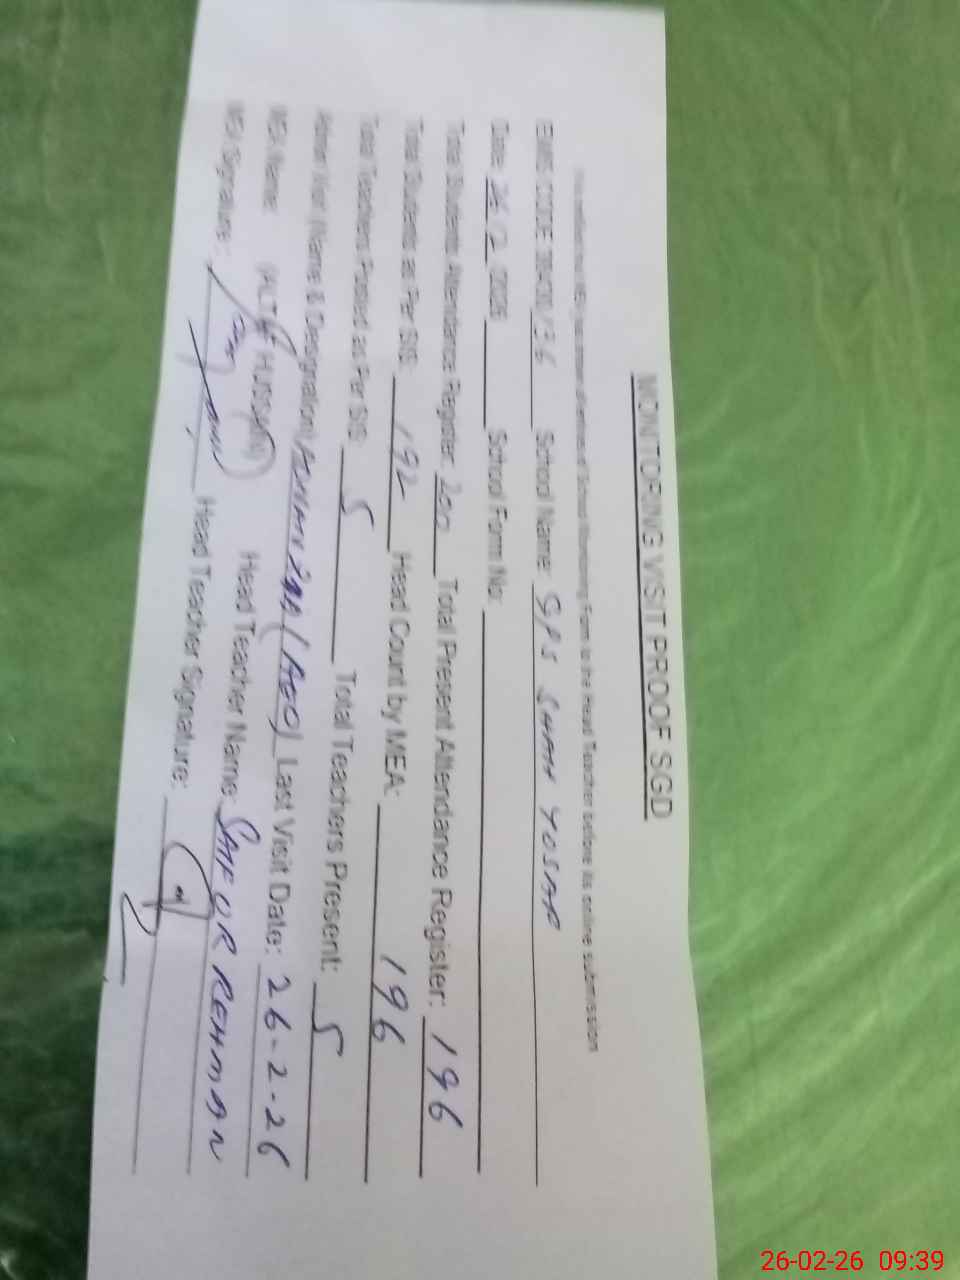 MONITORING VISIT PROOF SGD
School Monitoring Form to the Head Teacher before its online submission
EMIS CODE School Name: GPS SHAH YOSAF
Date: 26/2/2026 School Form No:
Total Students Attendance Register: 200 Total Present Attendance Register: 196
Total Students as Per SIS: 192 Head Count by MEA: 196
Total Teachers Posted as Per SIS: 5 Total Teachers Present: 5
(Name & Designation) (AEO) Last Visit Date: 26-2-26
MEA Name: (ALTAF HUSSAIN) Head Teacher Name: SAIF UR REHMAN
MEA Signature: Head Teacher Signature:
26-02-26 09:39